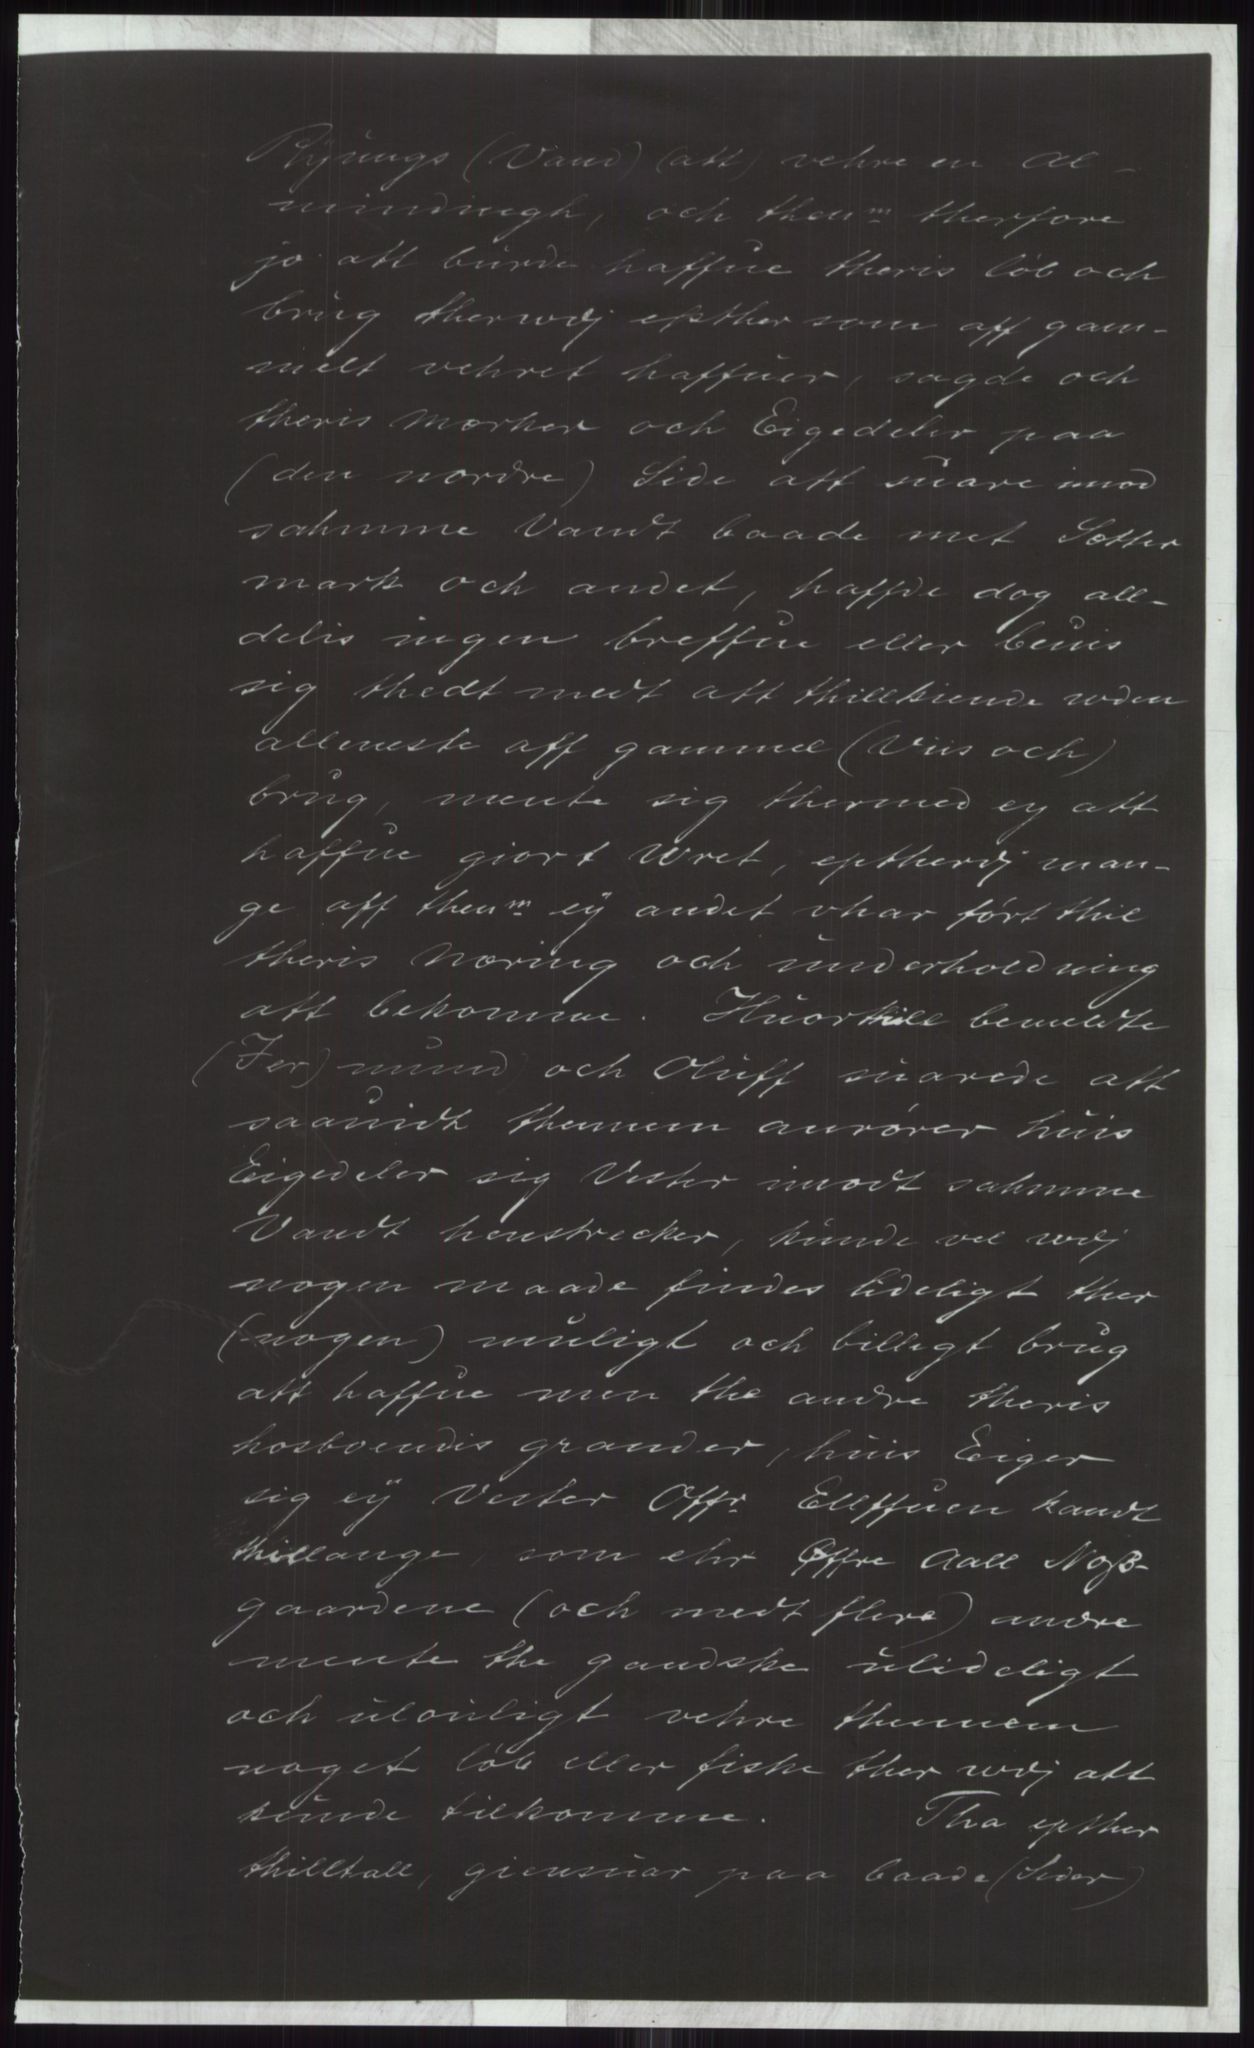 Rÿŭngs (Vand) (att) vehre en Al-
mindnegh, och thenm therfore
jo att bŭrde haffŭe theris löb och
brŭg therwdj epther som aff gam-
melt vehret haffŭer, sagde och
theris Marker och Eigedeler paa
(den nordre) Side att sŭare imod
sahmme Vandt baade met Sætter
mark och andet, haffde dog all-
delis ingen breffŭe eller beŭis
sig thedt medt att thillkiende uden
alleneste aff gammel (Viis och)
brŭg, mente sig thermed ey att
haffŭe giort Wret, eptherdj man-
ge aff thenm eÿ andet vhar fört thil
theris Næring och ŭnderholdning
att bekomme. Hŭorthill bemeldte
(Fer) mŭnd och Olŭff sŭarede att
saaŭidt thennem anrører hŭis
Eigedeler sig Vester imodt sahmme
Vandt henstrecker, kŭnde vel wdj
nogen maade findes lideligt ther
(nogen) mŭligt och billigt brŭg
att haffŭe men the andre theris
hosboendis grander, hŭis Eiger
sig eÿ Vester Offr Ellffŭen kandt
thillange, som ehr Øffre Aall Næss-
gaardene (och medt flere) andre
mente the gandske ŭlideligt
och ŭlouligt vehre thennem
noget löb eller fiske ther wdj att
kŭnde tilkomme. Tha epther
thilltall, giensŭar paa baade (Sider)